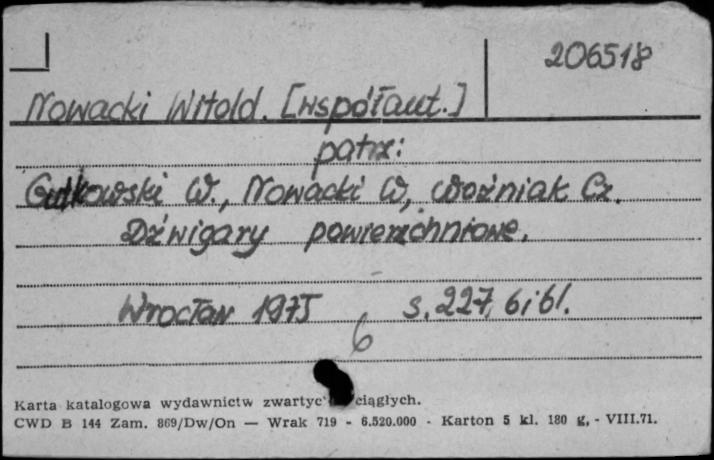 206518
Nowacki Witold. [współaut.]
patrz:
Gutkowski W., Nowacki W, Woźniak Cz.
Dźwigary powierzchniowe.
Wrocław 1975 s. 227, bibl.
6
Karta katalogowa wydawnictw zwartyc ciągłych.
CWD B 144 Zam. 869/Dw/On — Wrak 719 - 6.520.000 - Karton 5 kl. 180 g. - VIII.71.